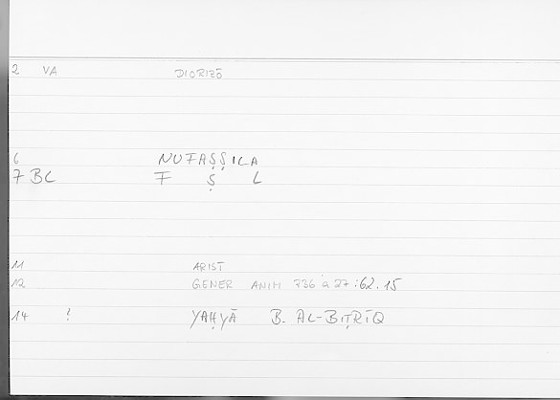 2 VA DIORIZŌ
6 NUFAṢṢILA
7 BL F Ṣ L
11 ARIST
12 GENER ANIM 736 a 27 : 62.15
14 ! YAḤYĀ B. AL-BIṬRĪQ